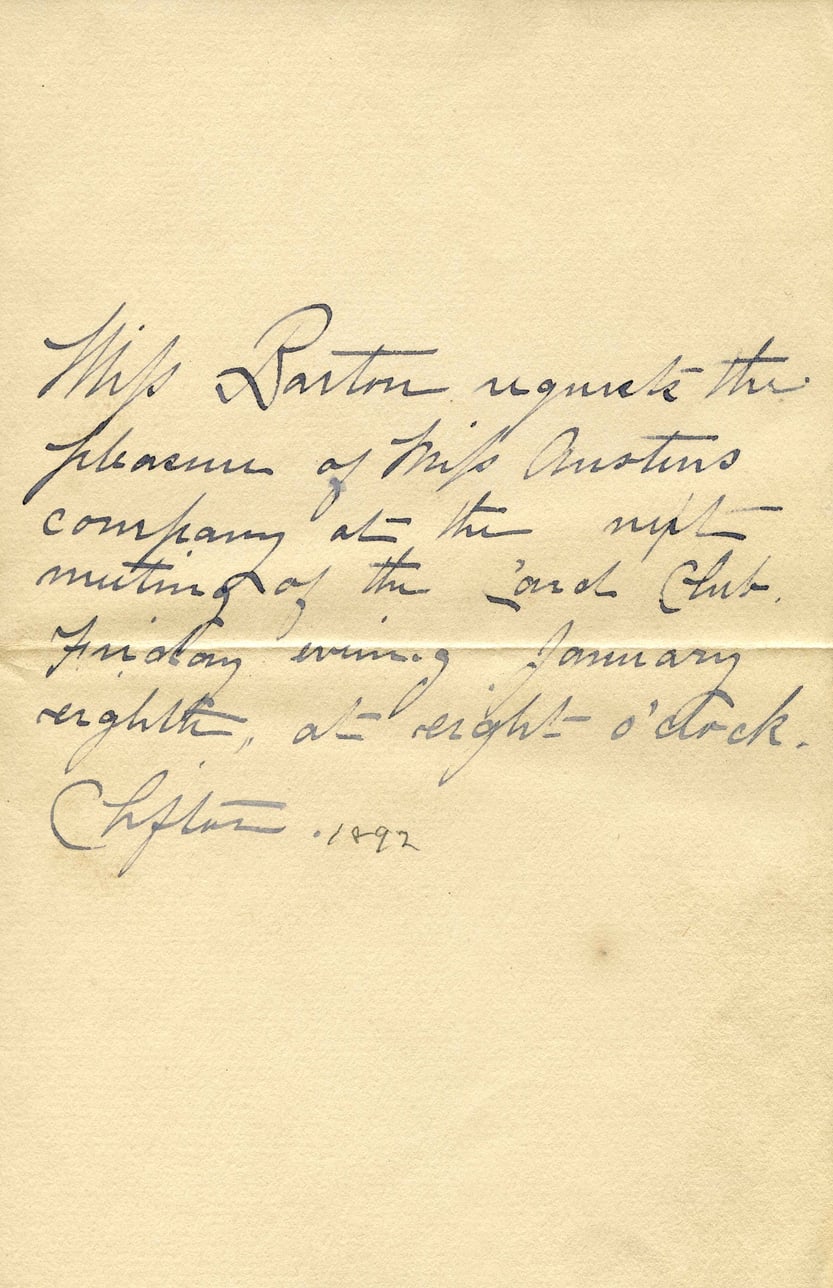 Miss Barton requests the
pleasure of Miss Austens
company at the next
meeting of the Card Club.
Friday evening January
eighth, at eight o'clock.
Clifton. 1892